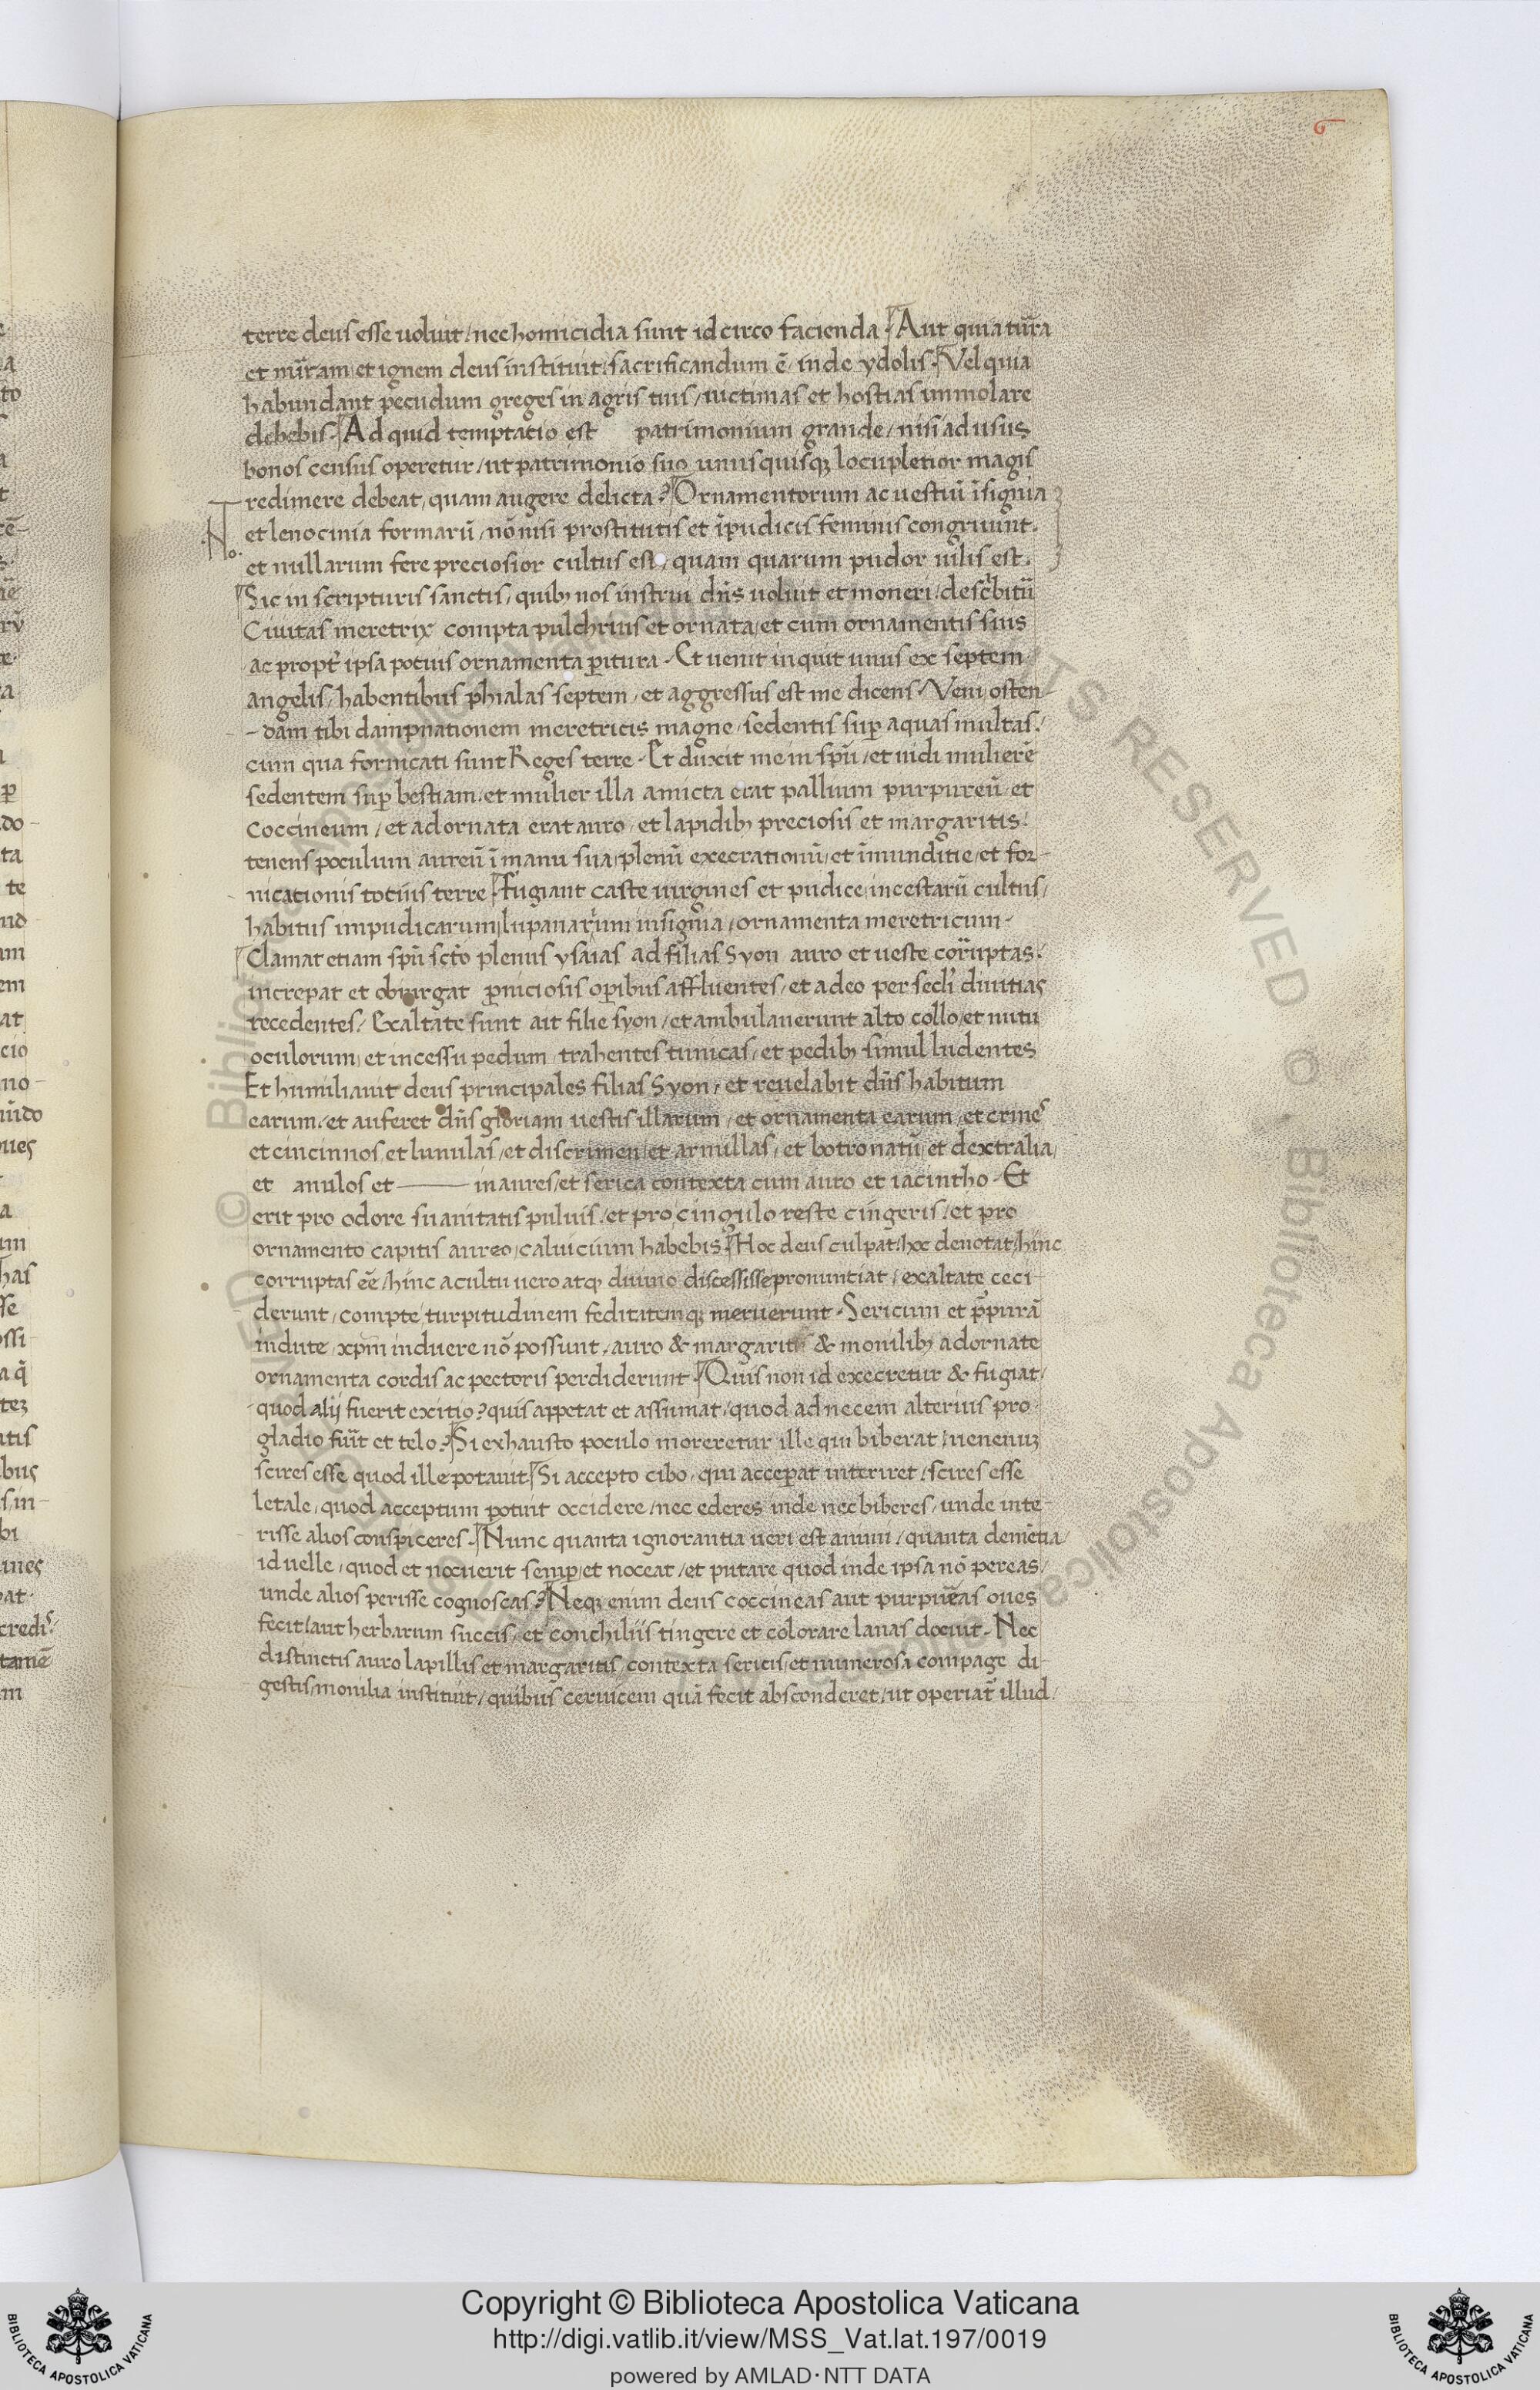 6
terre deus esse uoluit / nec homicidia sunt id circo facienda · Aut quia tur̄a
et mīram et ignem deus instituit / sacrificandum ē inde ydolis · Vel quia
habundant pecudum greges in agris tuis / uictimas et hostias immolare
debebis · Ad quid temptatio est patrimonium grande / nisi ad usus
bonos census operetur / ut patrimonio suo unusquisq; locupletior magis
redimere debeat, quam augere delicta? Ornamentorum ac uestiū īsignia
.No. et lenocinia formarū / nō nisi prostitutis et īpudicis feminis congruunt.
et nullarum fere preciosior cultus est, quam quarum pudor uilis est.
Sic in scripturis sanctis, quib; nos instrui dn̄s uoluit et moneri / describitū
Ciuitas meretrix compta pulchrius et ornata, et cum ornamentis suis
ac propt̄ ipsa potius ornamenta p̄itura · Et uenit inquit unus ex septem
angelis, habentibus phialas septem, et aggressus est me dicens / Veni osten-
- dam tibi dampnationem meretricis magne, sedentis sup̄ aquas multas /
cum qua fornicati sunt Reges terre · Et duxit me in spū / et uidi mulierē
sedentem sup̄ bestiam. et mulier illa amicta erat pallium purpureū et
Coccineum / et adornata erat auro, et lapidib; preciosis et margaritis /
tenens poculum aureū ī manu sua, plenū execrationū, et īmunditie, et for-
nicationis totius terre · Fugiant caste uirgines et pudice incestarū cultus /
habitus impudicarum, lupanarium insignia / ornamenta meretricum ·
Clamat etiam spū sctō plenus ysaias ad filias Syon auro et ueste corruptas /
increpat et obiurgat p̄niciosis op̄ibus affluentes / et a deo per secli diuitias
recedentes / Exaltate sunt ait filie syon / et ambulauerunt alto collo, et nutu
oculorum, et incessu pedum trahentes tunicas, et pedib; simul ludentes
Et humiliauit deus principales filias Syon, et reuelabit dn̄s habitum
earum / et auferet dn̄s gloriam uestis illarum, et ornamenta earum, et crines
et cincinnos, et lunulas, et discrimen, et armillas, et botronatū, et dextralia,
et anulos et —— in aures, et serica contexta cum auro et iacintho · Et
erit pro odore suauitatis puluis / et pro cingulo reste cingeris / et pro
ornamento capitis aureo, caluicium habebis · Hoc deus culpat / hoc denotat / hinc
corruptas eē / hinc a cultu uero atq; diuino discessisse pronuntiat / exaltate ceci-
derunt, compte, turpitudinem feditatemq; meruerunt · Sericum et p̄purā
indute, xp̄m induere nō possunt, auro & margaritis & monilib; adornate
ornamenta cordis ac pectoris perdiderunt · Quis non id execretur & fugiat /
quod alij fuerit exitio? quis appetat et assumat / quod ad necem alterius pro
gladio fuīt et telo? Si exhausto poculo moreretur ille qui biberat / uenenuz
scires esse quod ille potauit · Si accepto cibo, qui accep̄at interiret / scires esse
letale, quod acceptum potuit occidere / nec ederes inde nec biberes, unde inte-
risse alios conspiceres · Nunc quanta ignorantia ueri est animi / quanta demētia /
id uelle, quod et nocuerit semp̄ et noceat / et putare quod inde ipsa nō pereas /
unde alios perisse cognoscas? Neq; enim deus coccineas aut purpureas oues
fecit / aut herbarum succis, et conchiliis tingere et colorare lanas docuit · Nec
distinctis auro lapillis et margaritis, contexta sericis, et numerosa compage di-
gestis, monilia instituit, quibus ceruicem quā fecit absconderet / ut operiat̄ illud /
Copyright © Biblioteca Apostolica Vaticana
http://digi.vatlib.it/view/MSS_Vat.lat.197/0019
powered by AMLAD·NTT DATA
BIBLIOTECA APOSTOLICA VATICANA
BIBLIOTECA APOSTOLICA VATICANA